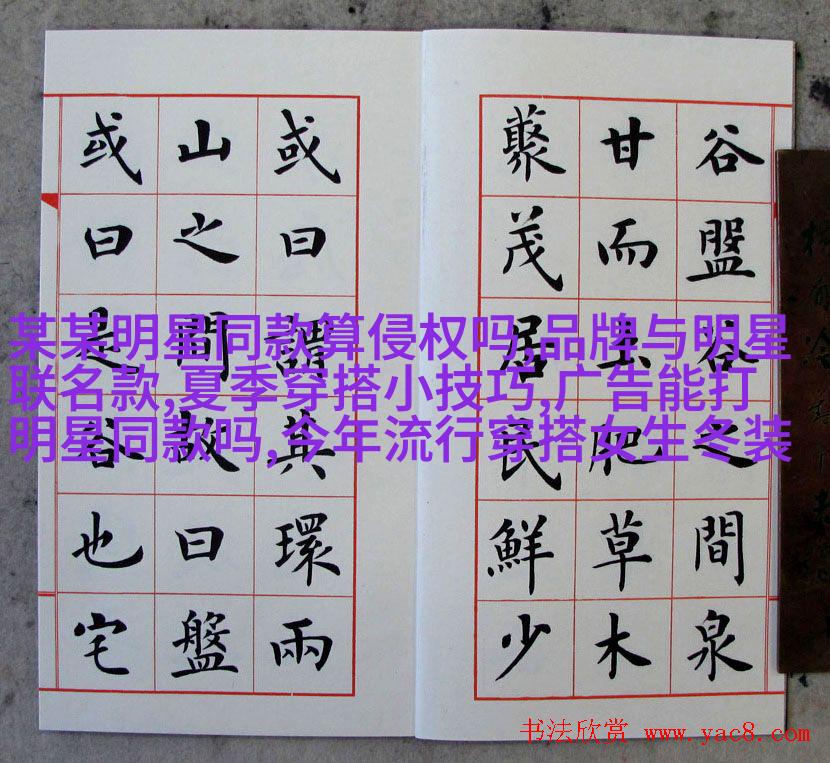 谷盤谷之間泉
甘而土肥草木
藂茂居民鮮少
或曰謂其環兩
山之間故曰盤
或曰是谷也宅
某某明星同款算侵权吗,品牌与明星
联名款,夏季穿搭小技巧,广告能打
明星同款吗,今年流行穿搭女生冬装
书法欣赏 www.yac8.com